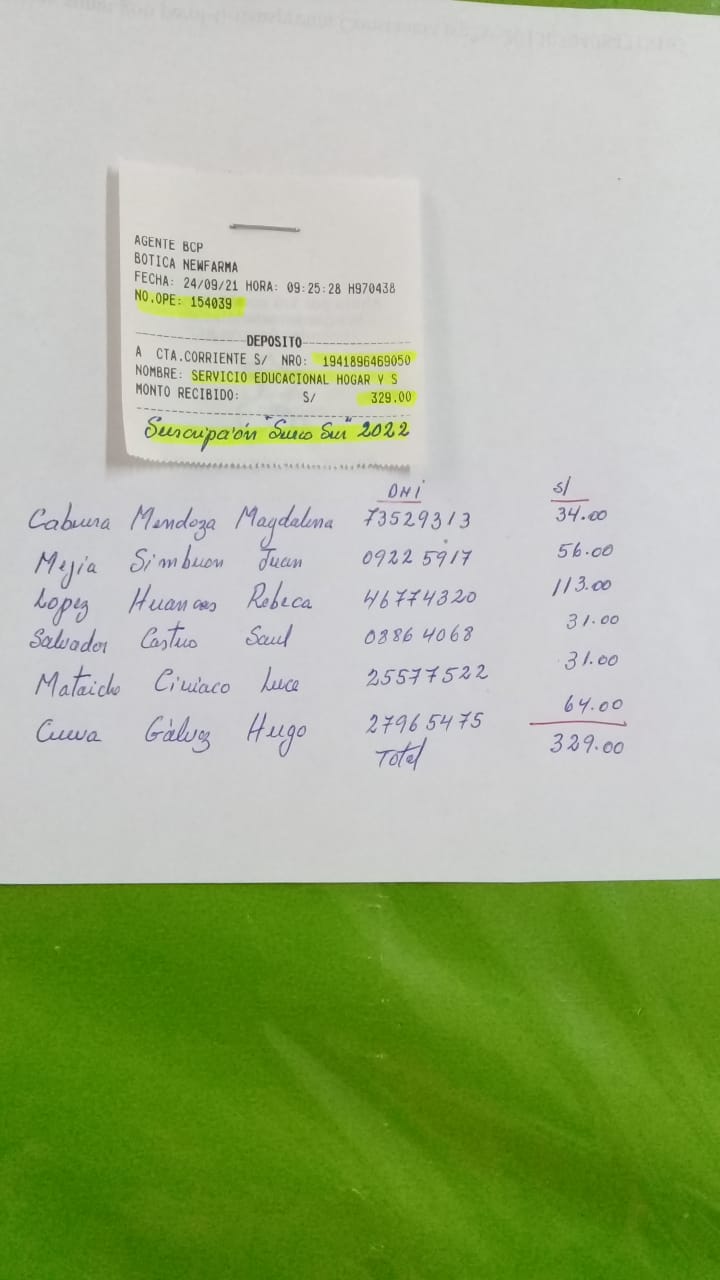 AGENTE BCP
BOTICA NEWFARMA
FECHA: 24/09/21 HORA: 09:25:28 H970438
NO.OPE: 154039
DEPOSITO
A CTA.CORRIENTE S/ NRO: 1941896469050
NOMBRE: SERVICIO EDUCACIONAL HOGAR Y S
MONTO RECIBIDO: S/ 329.00
Suscripción "Surco Sur" 2022
DNI S/
Cabrera Mendoza Magdalena 73529313 34.00
Mejia Simbron Juan 09225917 56.00
Lopez Huancas Rebeca 46774320 113.00
Salvador Castro Saul 08864068 31.00
Ciriaco 25577522 31.00
Cueva Gálvez Hugo 27965475 64.00
Total 329.00